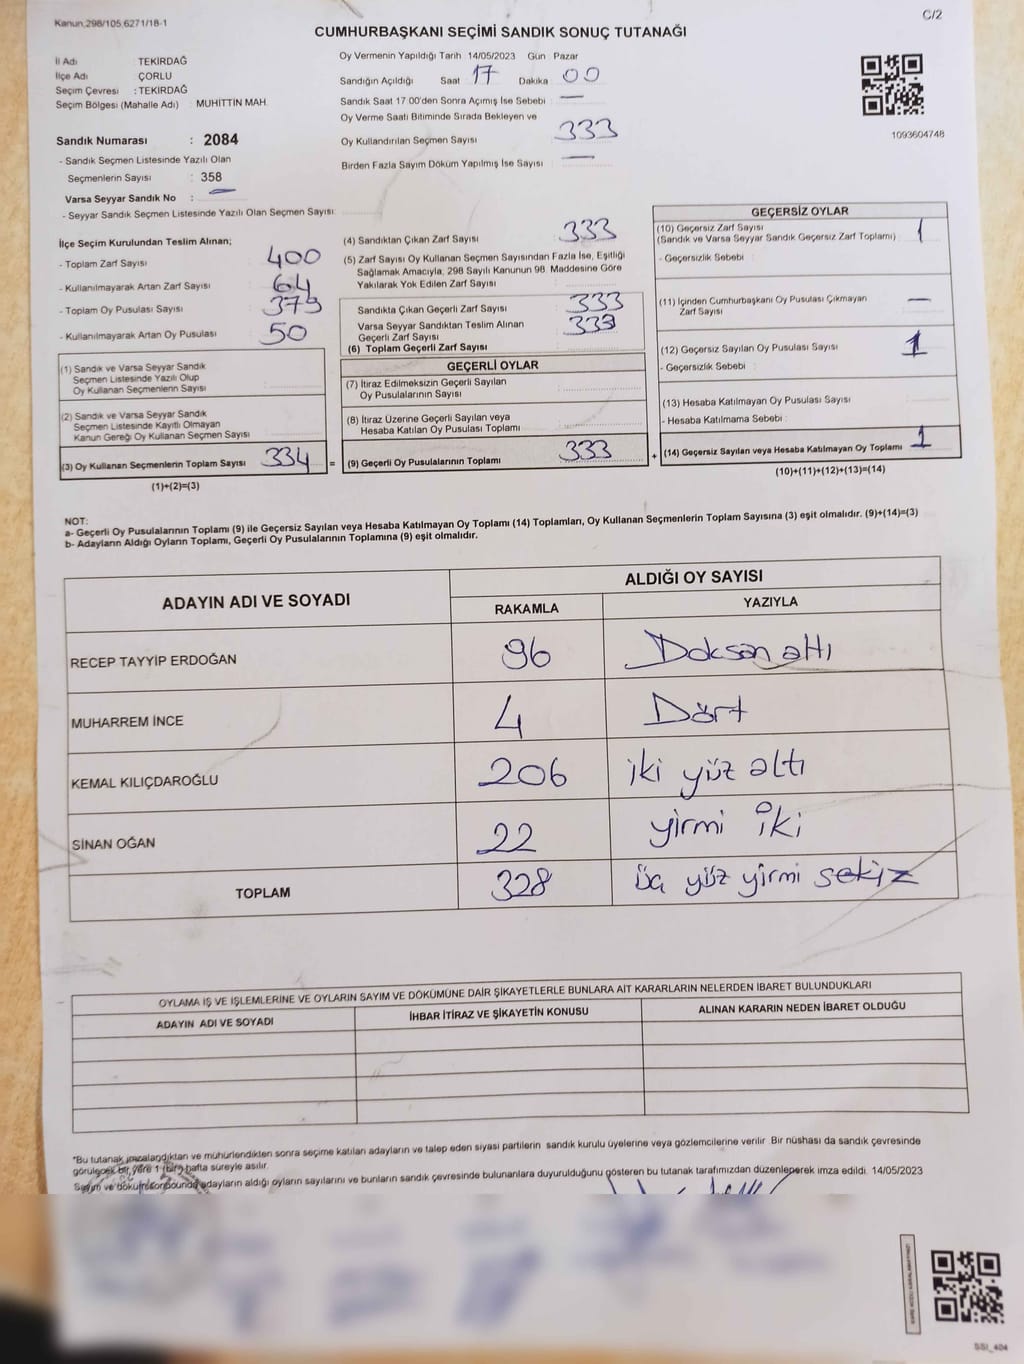 Kanun,298/105,6271/18-1
C/2
CUMHURBAŞKANI SEÇİMİ SANDIK SONUÇ TUTANAĞI
İl Adı TEKİRDAĞ
İlçe Adı ÇORLU
Seçim Çevresi : TEKİRDAĞ
Seçim Bölgesi (Mahalle Adı) : MUHİTTİN MAH.
Sandık Numarası : 2084
- Sandık Seçmen Listesinde Yazılı Olan
Seçmenlerin Sayısı : 358
Varsa Seyyar Sandık No : —
- Seyyar Sandık Seçmen Listesinde Yazılı Olan Seçmen Sayısı:
Oy Vermenin Yapıldığı Tarih 14/05/2023 Gün Pazar
Sandığın Açıldığı Saat 17 Dakika 00
Sandık Saat 17 00'den Sonra Açımış İse Sebebi : —
Oy Verme Saati Bitiminde Sırada Bekleyen ve
Oy Kullandırılan Seçmen Sayısı : 333
Birden Fazla Sayım Döküm Yapılmış İse Sayısı : —
1093604748
İlçe Seçim Kurulundan Teslim Alınan;
- Toplam Zarf Sayısı : 400
- Kullanılmayarak Artan Zarf Sayısı : 64
- Toplam Oy Pusulası Sayısı : 379
- Kullanılmayarak Artan Oy Pusulası : 50
(1) Sandık ve Varsa Seyyar Sandık
Seçmen Listesinde Yazılı Olup
Oy Kullanan Seçmenlerin Sayısı :
(2) Sandık ve Varsa Seyyar Sandık
Seçmen Listesinde Kayıtlı Olmayan
Kanun Gereği Oy Kullanan Seçmen Sayısı :
(3) Oy Kullanan Seçmenlerin Toplam Sayısı : 334 =
(1)+(2)=(3)
(4) Sandıktan Çıkan Zarf Sayısı : 333
(5) Zarf Sayısı Oy Kullanan Seçmen Sayısından Fazla İse, Eşitliği
Sağlamak Amacıyla, 298 Sayılı Kanunun 98. Maddesine Göre
Yakılarak Yok Edilen Zarf Sayısı :
Sandıkta Çıkan Geçerli Zarf Sayısı : 333
Varsa Seyyar Sandıktan Teslim Alınan
Geçerli Zarf Sayısı : 333
(6) Toplam Geçerli Zarf Sayısı :
GEÇERLİ OYLAR
(7) İtiraz Edilmeksizin Geçerli Sayılan
Oy Pusulalarının Sayısı :
(8) İtiraz Üzerine Geçerli Sayılan veya
Hesaba Katılan Oy Pusulası Toplamı :
(9) Geçerli Oy Pusulalarının Toplamı : 333 +
GEÇERSİZ OYLAR
(10) Geçersiz Zarf Sayısı : 1
(Sandık ve Varsa Seyyar Sandık Geçersiz Zarf Toplamı)
- Geçersizlik Sebebi :
(11) İçinden Cumhurbaşkanı Oy Pusulası Çıkmayan : —
Zarf Sayısı
(12) Geçersiz Sayılan Oy Pusulası Sayısı : 1
- Geçersizlik Sebebi :
(13) Hesaba Katılmayan Oy Pusulası Sayısı :
- Hesaba Katılmama Sebebi :
(14) Geçersiz Sayılan veya Hesaba Katılmayan Oy Toplamı : 1
(10)+(11)+(12)+(13)=(14)
NOT:
a- Geçerli Oy Pusulalarının Toplamı (9) ile Geçersiz Sayılan veya Hesaba Katılmayan Oy Toplamı (14) Toplamları, Oy Kullanan Seçmenlerin Toplam Sayısına (3) eşit olmalıdır. (9)+(14)=(3)
b- Adayların Aldığı Oyların Toplamı, Geçerli Oy Pusulalarının Toplamına (9) eşit olmalıdır.
ADAYIN ADI VE SOYADI ALDIĞI OY SAYISI
RAKAMLA YAZIYLA
RECEP TAYYİP ERDOĞAN 96 Doksan altı
MUHARREM İNCE 4 Dört
KEMAL KILIÇDAROĞLU 206 iki yüz altı
SİNAN OĞAN 22 yirmi iki
TOPLAM 328 üç yüz yirmi sekiz
OYLAMA İŞ VE İŞLEMLERİNE VE OYLARIN SAYIM VE DÖKÜMÜNE DAİR ŞİKAYETLERLE BUNLARA AİT KARARLARIN NELERDEN İBARET BULUNDUKLARI
ADAYIN ADI VE SOYADI İHBAR İTİRAZ VE ŞİKAYETİN KONUSU ALINAN KARARIN NEDEN İBARET OLDUĞU
"Bu tutanak imzalandıktan ve mühürlendikten sonra seçime katılan adayların ve talep eden siyasi partilerin sandık kurulu üyelerine veya gözlemcilerine verilir. Bir nüshası da sandık çevresinde
görülecek bir yere 1 (bir) hafta süreyle asılır.
Sayım ve döküm sonucunda adayların aldığı oyların sayılarını ve bunların sandık çevresinde bulunanlara duyurulduğunu gösteren bu tutanak tarafımızdan düzenlenerek imza edildi. 14/05/2023
SSI_404